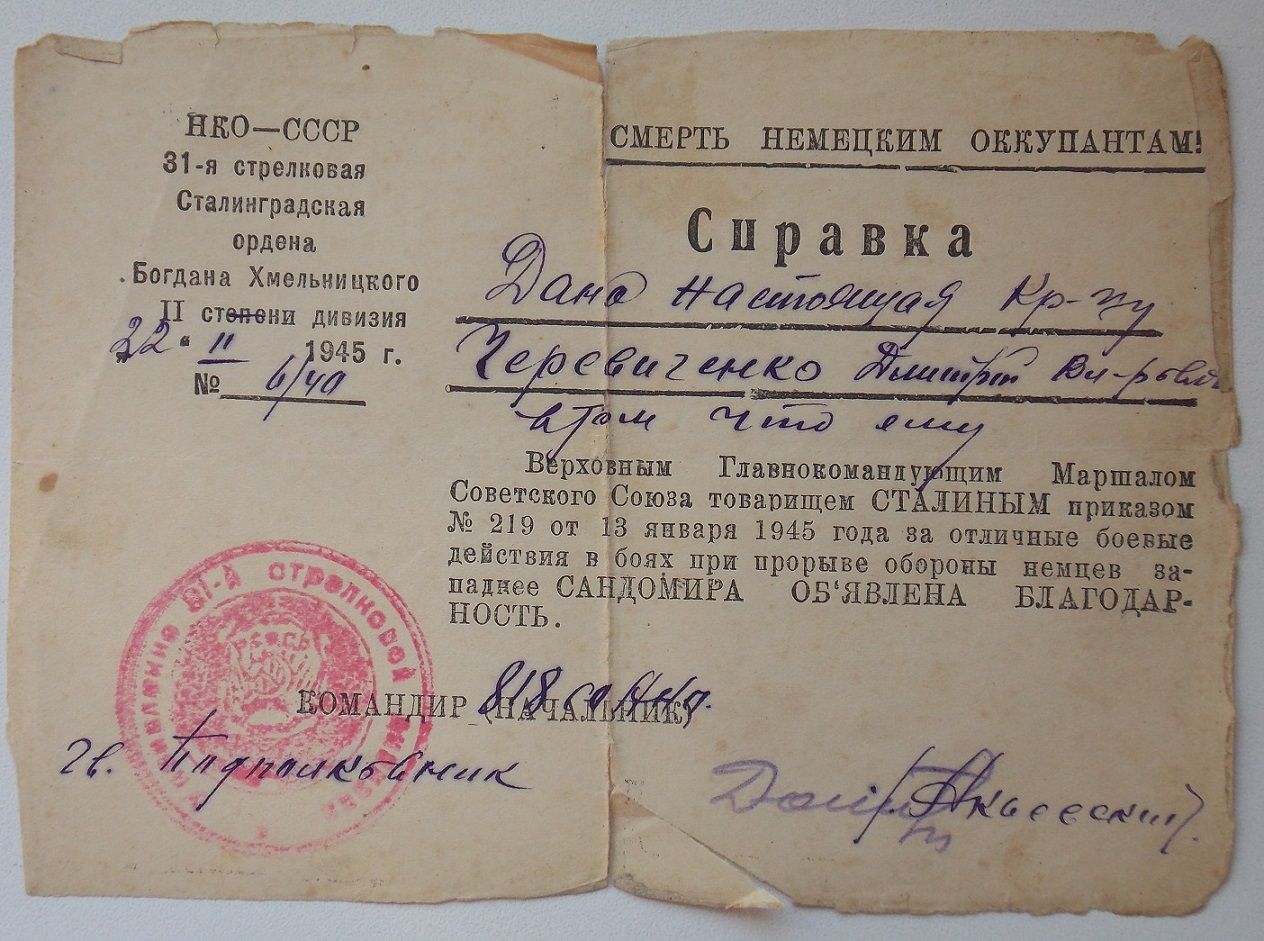 НКО—СССР
31-я стрелковая
Сталинградская
ордена
Богдана Хмельницкого
II степени дивизия
„22“ II 1945 г.
№ 6/40
СМЕРТЬ НЕМЕЦКИМ ОККУПАНТАМ!
Справка
Дана настоящая Кр-цу
Черевиченко Дмитрий Вл-рович
в том что ему
Верховным Главнокомандующим Маршалом
Советского Союза товарищем СТАЛИНЫМ приказом
№ 219 от 13 января 1945 года за отличные боевые
действия в боях при прорыве обороны немцев за-
паднее САНДОМИРА ОБ'ЯВЛЕНА БЛАГОДАР-
НОСТЬ.
КОМАНДИР (НАЧАЛЬНИК)
818
гв. Подполковник
31-й стрелковой